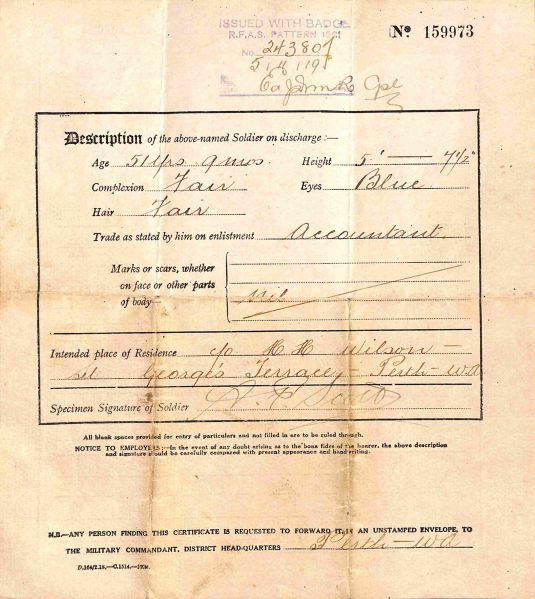 ISSUED WITH BADGE
R.F.A.S. PATTERN
No. 243807
Cpl
No 159973
Description of the above-named Soldier on discharge:—
Age 51 yrs 9 mos Height 5' — 7½"
Complexion Fair Eyes Blue
Hair Fair
Trade as stated by him on enlistment Accountant.
Marks or scars, whether
on face or other parts
of body
Nil
Intended place of Residence c/o H H Wilson —
St George's Terrace — Perth — WA
Specimen Signature of Soldier Scott
All blank spaces provided for entry of particulars and not filled in are to be ruled through.
NOTICE TO EMPLOYERS:—In the event of any doubt arising as to the bona fides of the bearer, the above description
and signature should be carefully compared with present appearance and handwriting.
N.B.—ANY PERSON FINDING THIS CERTIFICATE IS REQUESTED TO FORWARD IT, IN AN UNSTAMPED ENVELOPE, TO
THE MILITARY COMMANDANT, DISTRICT HEAD-QUARTERS Perth — WA